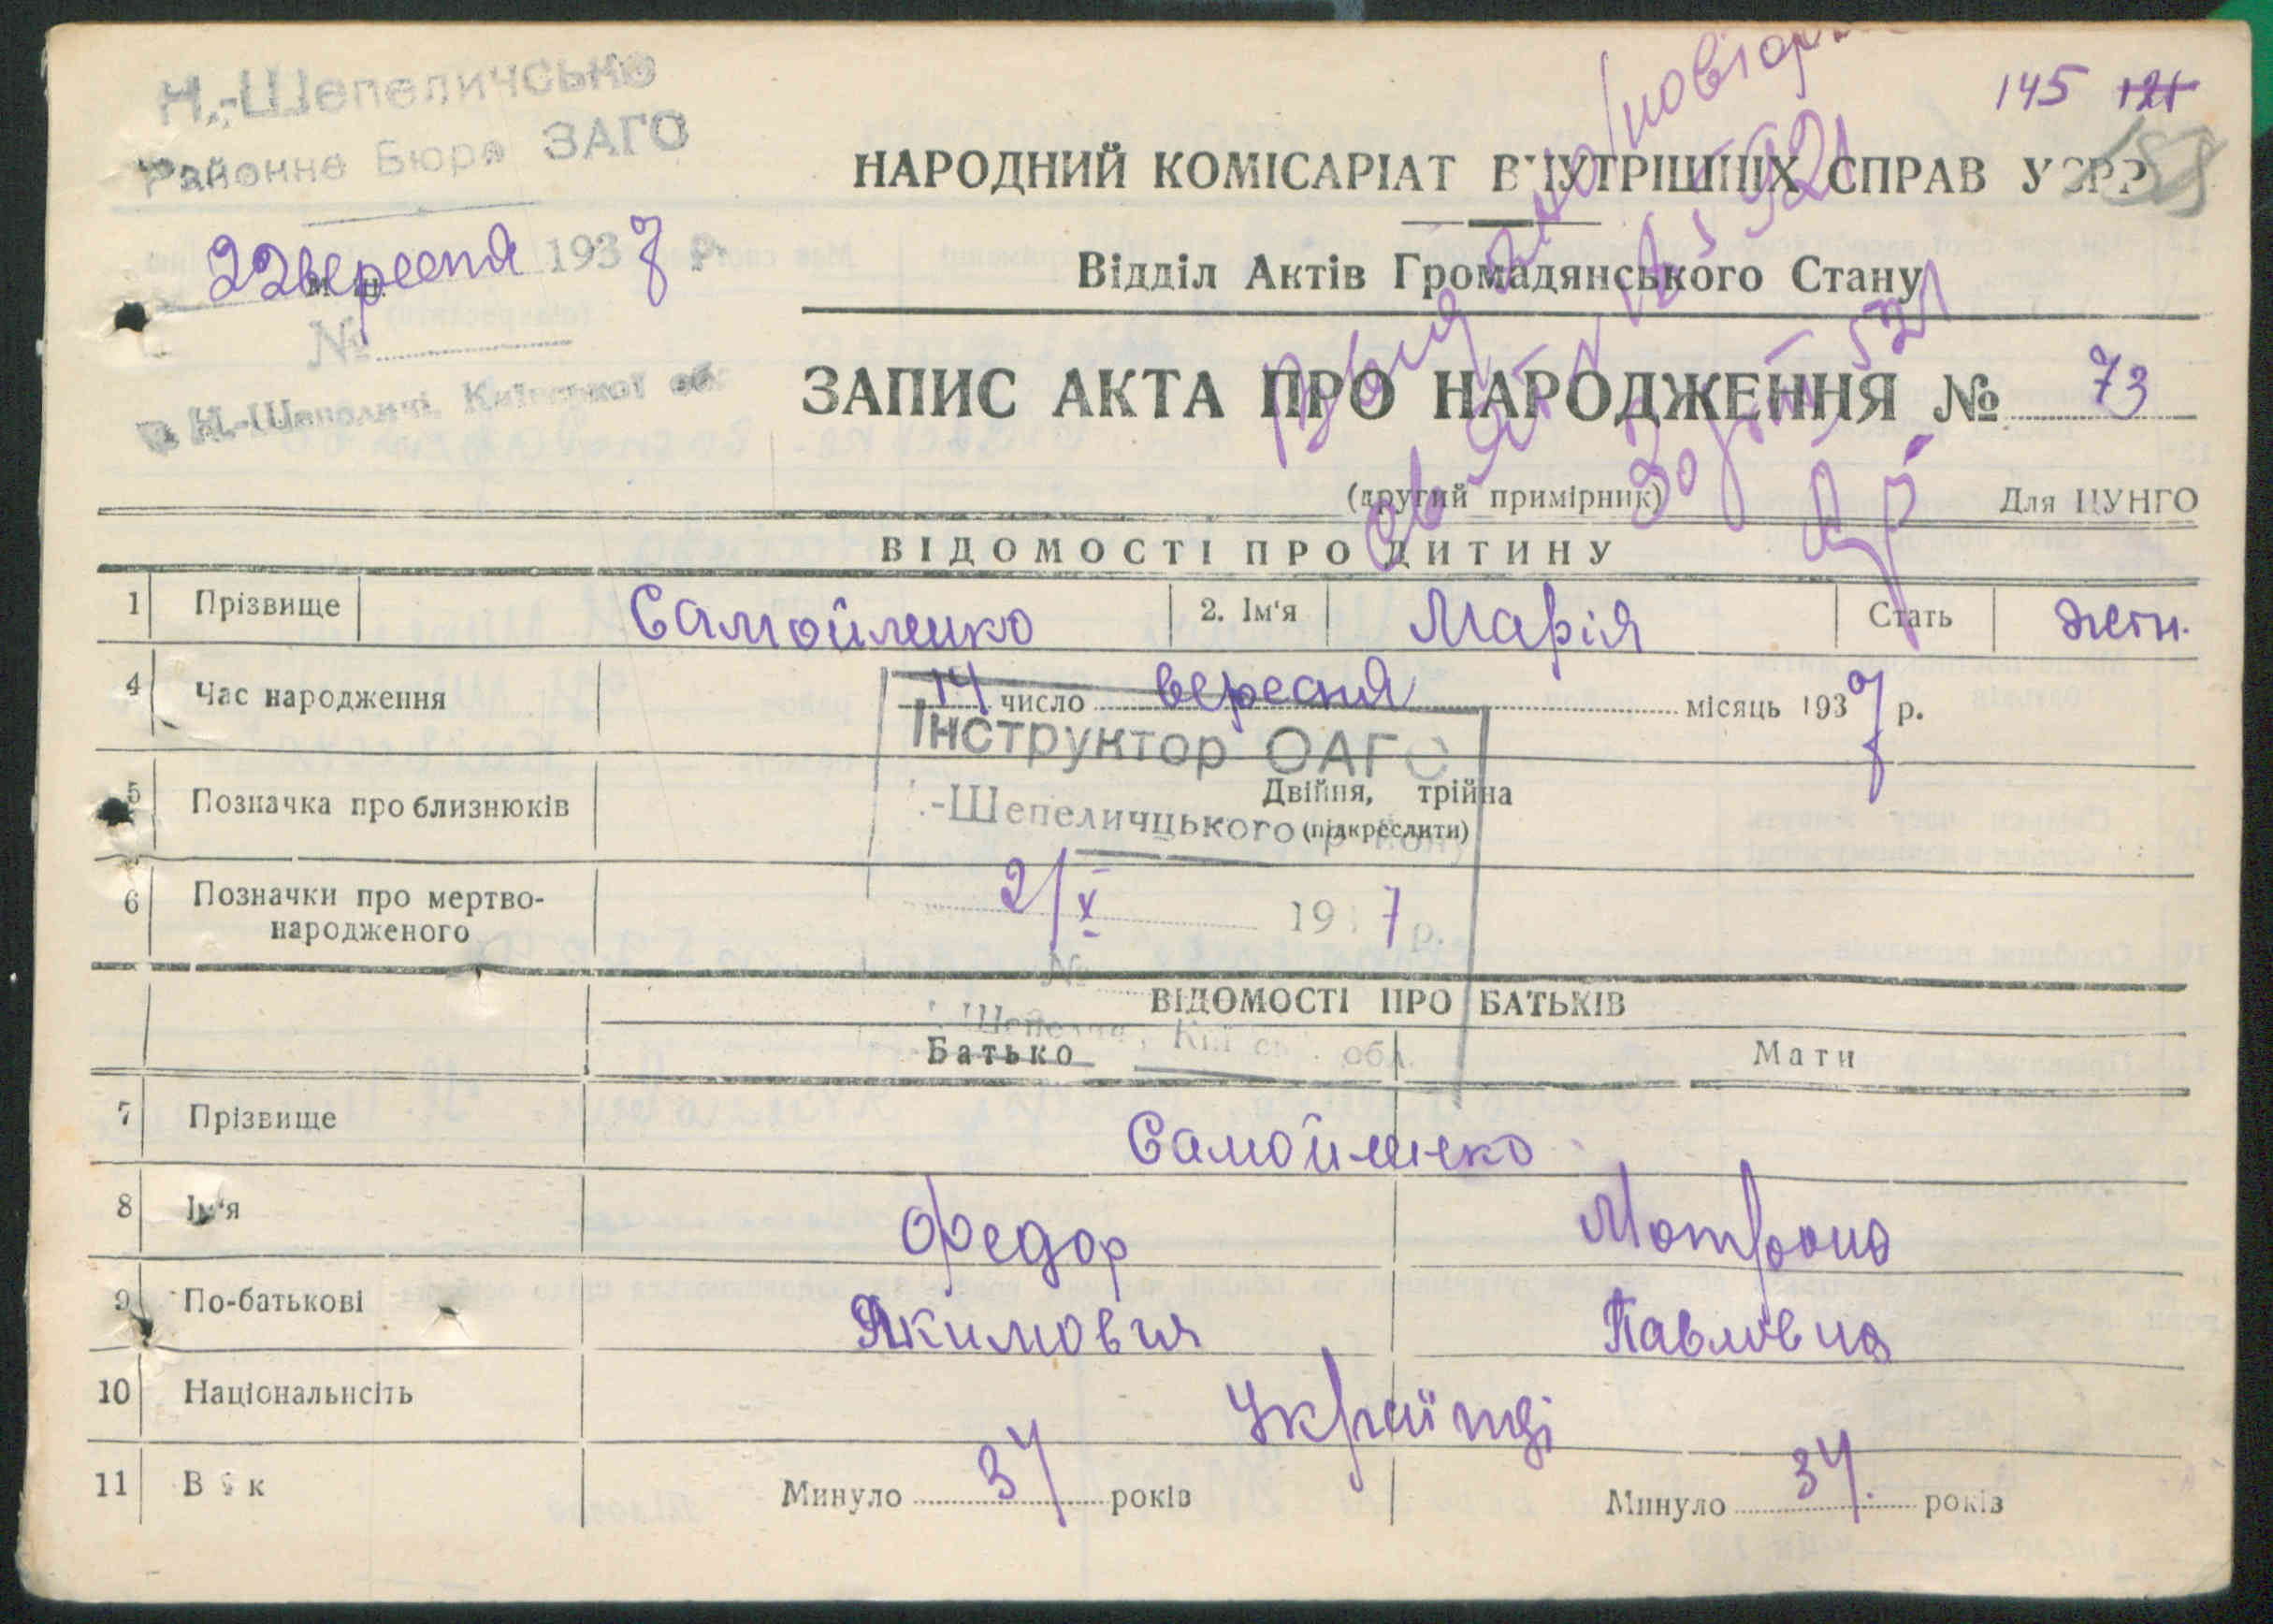 145 121
158
Н.-Шепеличське
Районне Бюро ЗАГС
22 вересня 1937 р.
№
Н-Шепеличі, Київської об
НАРОДНИЙ КОМІСАРІАТ ВНУТРІШНІХ СПРАВ УСРР
Відділ Актів Громадянського Стану
ЗАПИС АКТА ПРО НАРОДЖЕННЯ № 73
(другий примірник) Для ЦУНГО
ВІДОМОСТІ ПРО ДИТИНУ
1 Прізвище Самойленко 2. Ім'я Марія Стать жін.
4 Час народження 14 число вересня місяць 1937 р.
Інструктор ОАГС
5 Позначка про близнюків Двійня, трійня
(підкреслити)
-Шепеличцького
6 Позначки про мертво-
народженого
2/X 1937 р.
№
ВІДОМОСТІ ПРО БАТЬКІВ
Шепеличі, обл.
Батько Мати
7 Прізвище Самойленко
8 Ім'я Федор Мотрона
9 По-батькові Якимович Павловна
10 Національнсіть Українці
11 Вік Минуло 37 років Минуло 34 років